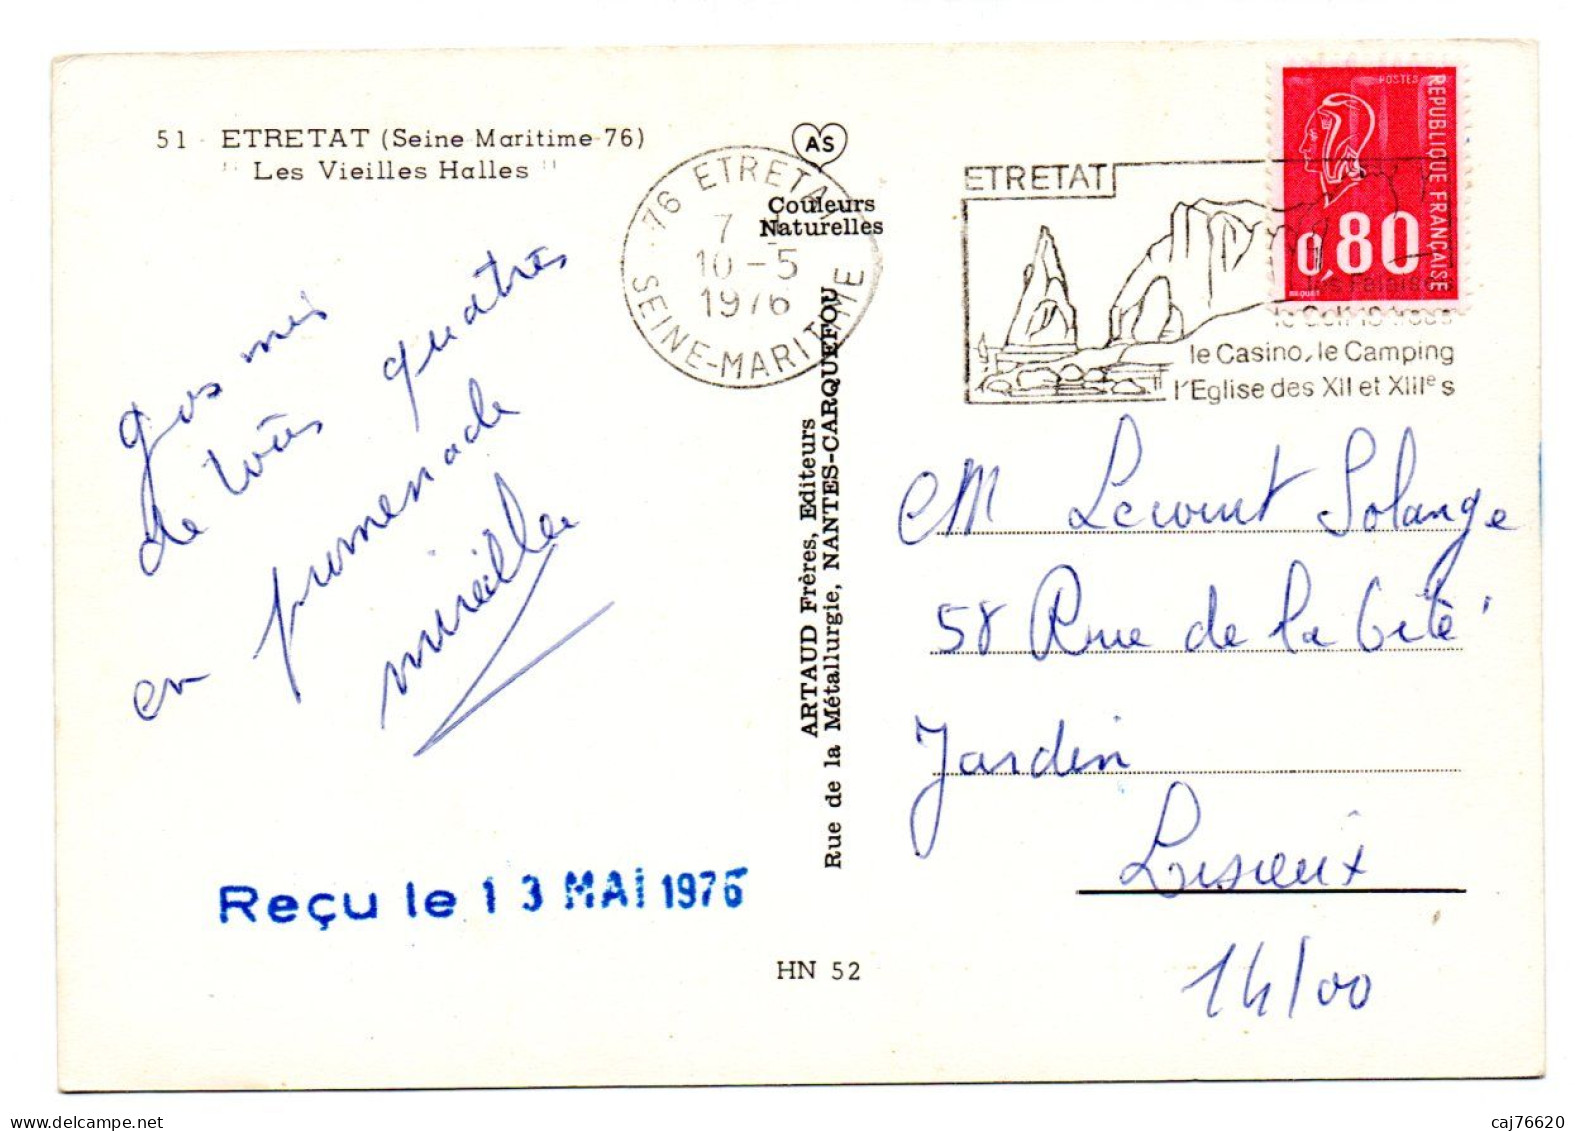 51 - ETRETAT (Seine-Maritime-76)
" Les Vieilles Halles "
AS
Couleurs
Naturelles
76 ETRETAT
7
10-5
1976
SEINE-MARITIME
ETRETAT
les Falaises
le Golf 18 trous
le Casino, le Camping
l'Eglise des XII et XIIIe s
POSTES
REPUBLIQUE FRANÇAISE
0,80
BEQUET
de
quatres
en promenade
mireille
ARTAUD Frères, Editeurs
Rue de la Métallurgie, NANTES-CARQUEFOU
M Solange
58 Rue de la Cité
Jardin
Lisieux
14100
Reçu le 13 MAI 1976
HN 52
www.delcampe.net
caj76620